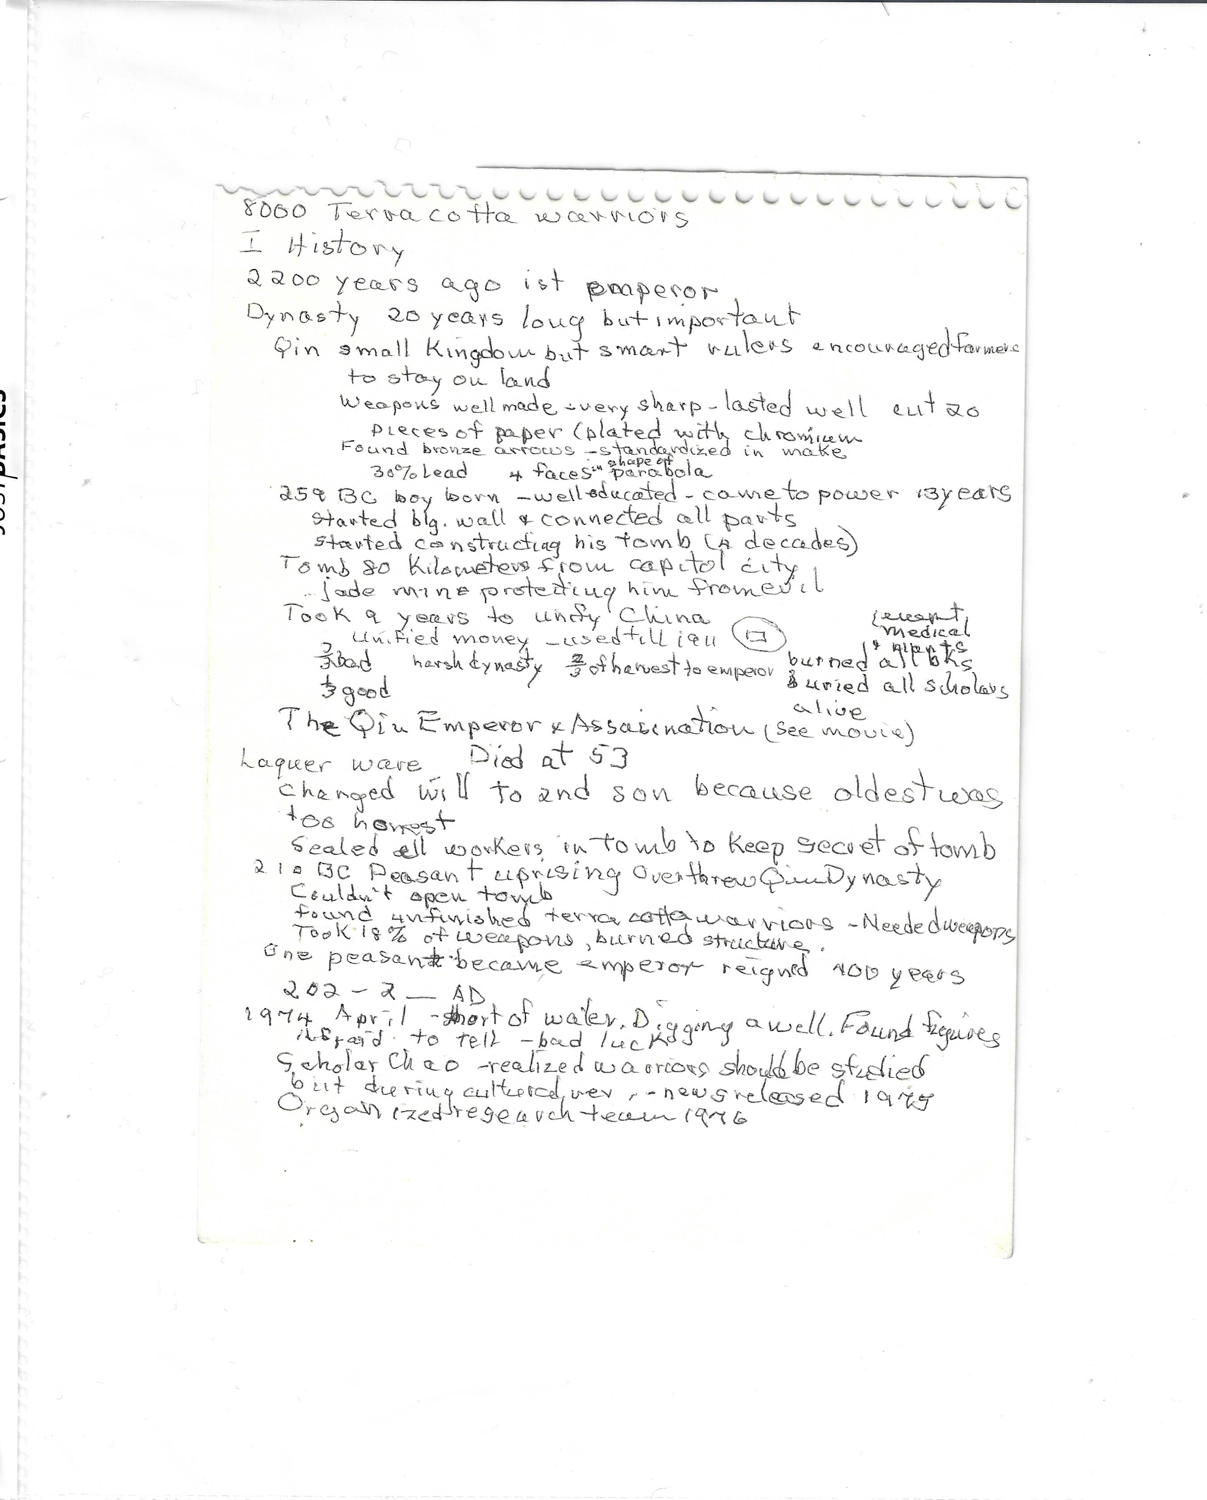 8000 Terra cotta warriors
I History
2200 years ago 1st emperor
Dynasty 20 years long but important
Qin small Kingdom but smart rulers encouraged farmers
to stay on land
Weapons well made - very sharp - lasted well cut 20
pieces of paper (plated with chromium
Found bronze arrows - standardized in make
30% Lead 4 faces in shape of parabola
259 BC boy born - well educated - came to power 13 years
started blg. wall & connected all parts
started constructing his tomb (4 decades)
Tomb 80 Kilometers from capitol city
jade mine protecting him from evil
Took 9 years to unify China
Unified money - used till 1911
(except
medical
& plants
2/3 bad harsh dynasty 2/3 of harvest to emperor burned all bks
1/3 good Buried all scholars
alive
The Qin Emperor & Assasination (see movie)
Laquer ware Died at 53
changed will to 2nd son because oldest was
too honest
Sealed all workers in tomb to Keep secret of tomb
210 BC Peasant uprising Overthrew Qin Dynasty
Couldn't open tomb
found unfinished terra cotta warriors - Needed weapons
Took 18% of weapons, burned structure.
One peasant became emperor reigned 400 years
202 - 2 — AD
1974 April - short of water. Digging a well. Found figures
afraid to tell - bad luck
Scholar Chao - realized warriors should be studied
but during cultural rev. - news released 1975
Organized research team 1976
JUST BASICS